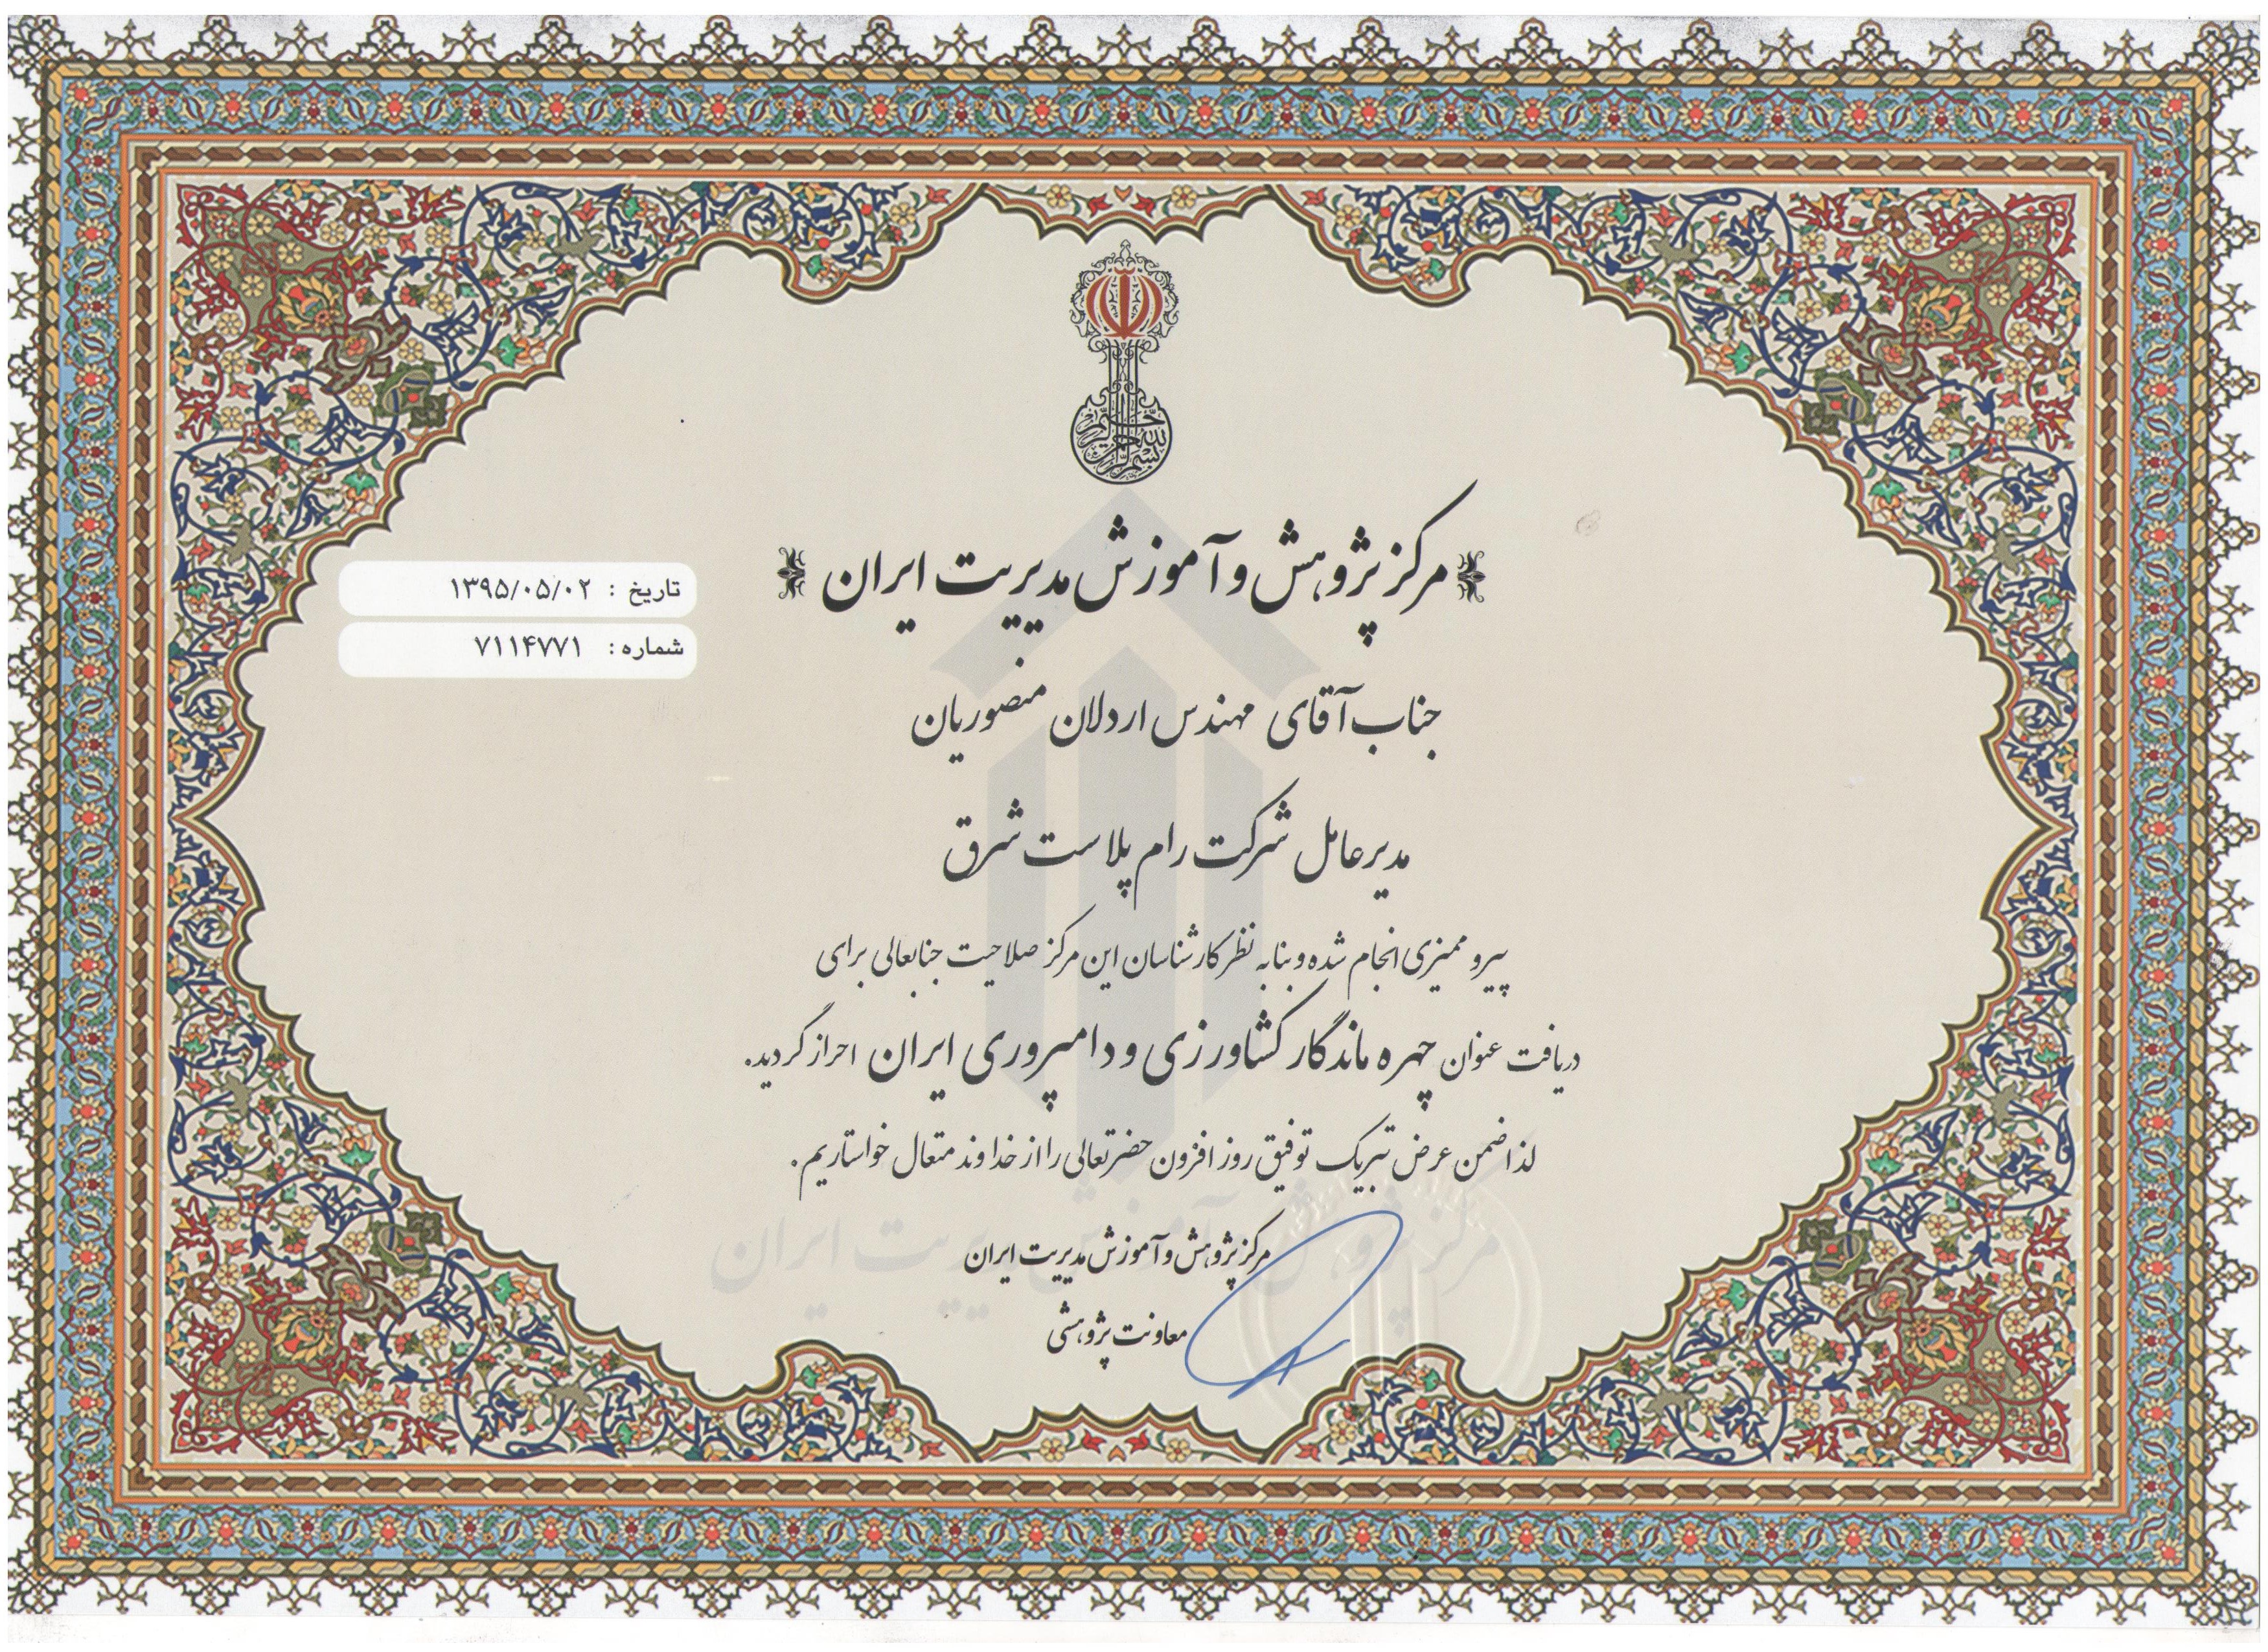 بسم الله الرحمن الرحیم
مرکز پژوهش و آموزش مدیریت ایران
تاریخ : ۱۳۹۵/۰۵/۰۲
شماره : ۷۱۱۴۷۷۱
جناب آقای مهندس اردلان منصوریان
مدیرعامل شرکت رام پلاست شرق
پیرو ممیزی انجام شده و بنا به نظر کارشناسان این مرکز صلاحیت جنابعالی برای
دریافت عنوان چهره ماندگار کشاورزی و دامپروری ایران احراز گردید.
لذا ضمن عرض تبریک توفیق روز افزون حضرتعالی را از خداوند متعال خواستاریم.
مرکز پژوهش و آموزش مدیریت ایران
مرکز پژوهش و آموزش مدیریت ایران
معاونت پژوهشی